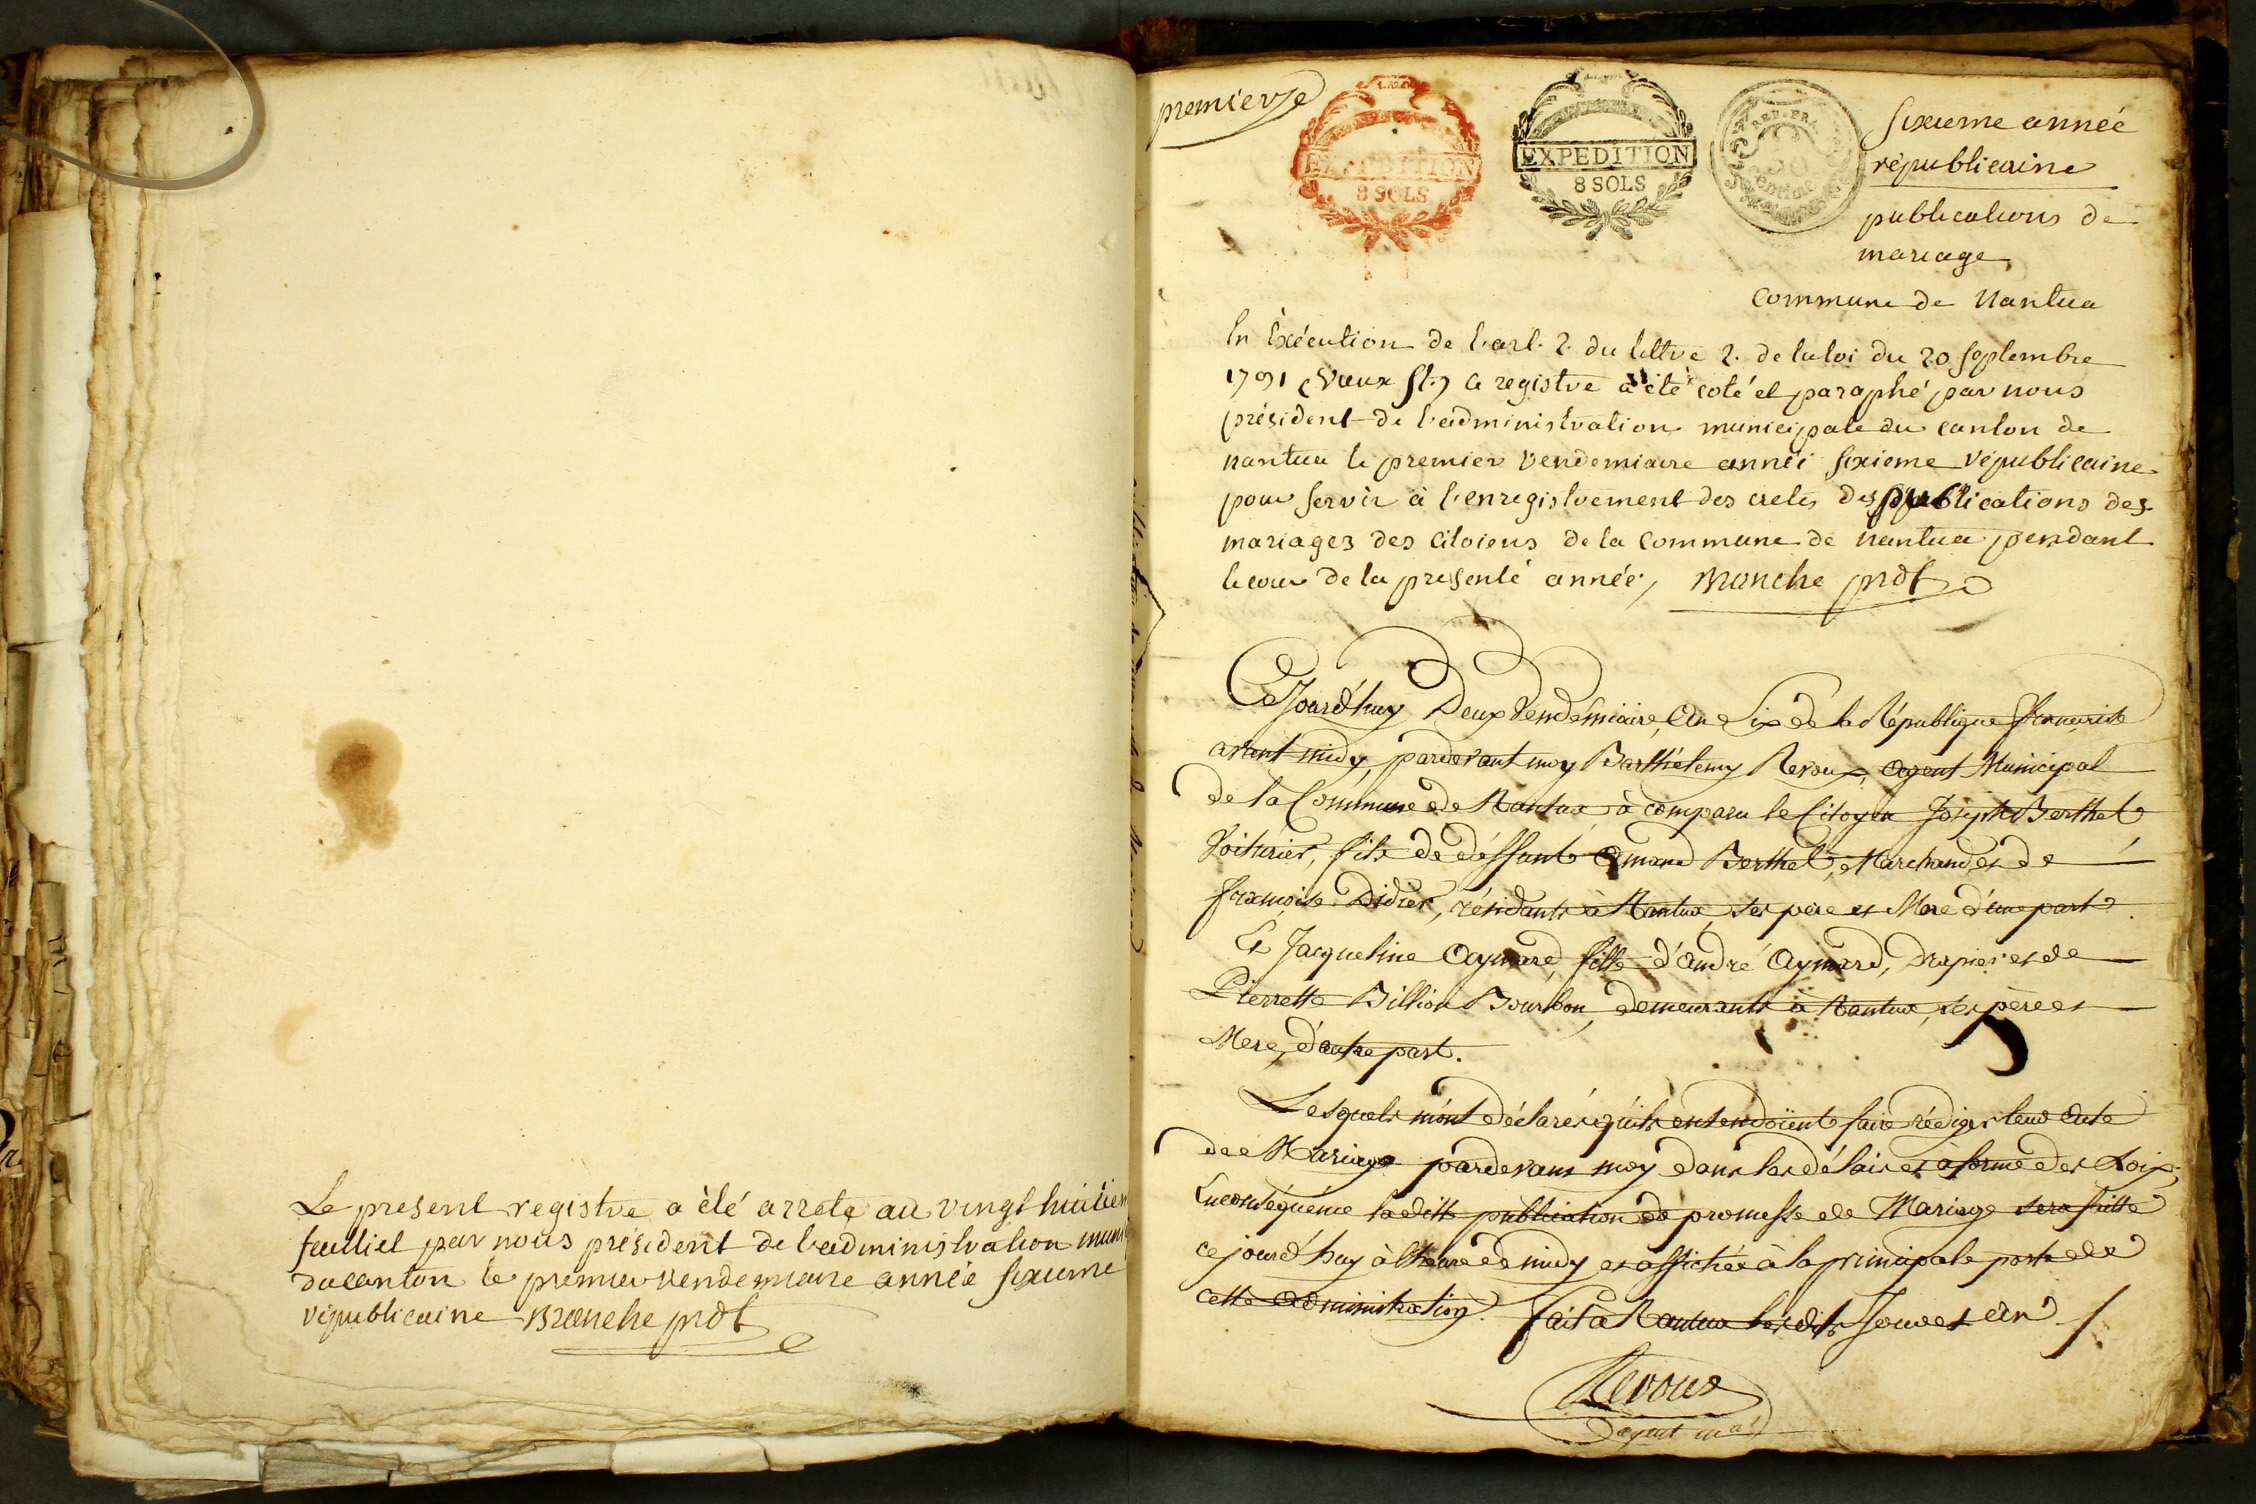 Le present registre a été arreté au vingt huitiem
feuillet par nous président de l'administration muni
du canton le premier vendemiaire année sixieme
républicaine Branche prdt
premier
EXPEDITION
8 SOLS
EXPEDITION
8 SOLS
REP. FRA.
50
centime
sixieme année
républicaine
publications de
mariage
commune de Nantua
En Exécution de l'art. 2. du tittre 2. de la loi du 20 septembre
1791 (vieux st.) ce registre a été coté et paraphé par nous
président de l'administration municipale du canton de
nantua le premier vendemiaire année sixieme républicaine
pour servir à l'enregistrement des actes des publications des
mariages des citoiens de la commune de nantua pendant
le cour de la presente année, Branche prdt
Ce Jourd'huy Deux Vendémiaire, an Six de la République française
avant midy, pardevant moy Barthélemy Revoux, agent Municipal
de la Commune de Nantua à comparu le Citoyen Joseph Berthet
Voiturier, fils de déffunt Amand Berthet, Marchand, et de
françoise Didier, résidants à Nantua, ses père et Mere d'une part
Et Jacqueline Aymard, fille d'andré Aymard, Drapier et de
Pierrette Billion Bourbon, demeurants à Nantua, ses père et
Mere, d'autre part.
Lesquels m'ont déclaré qu'ils entendoient faire rédiger leur acte
de Mariage pardevant moy dans les délais et a forme des Loix,
En conséquence laditte publication de promesse de Mariage sera faitte
ce jourd'huy à l'heure de midy et affichée à la principale porte de
cette administration. fait a Nantua lesdits Jour et an
Revoux
agent mal